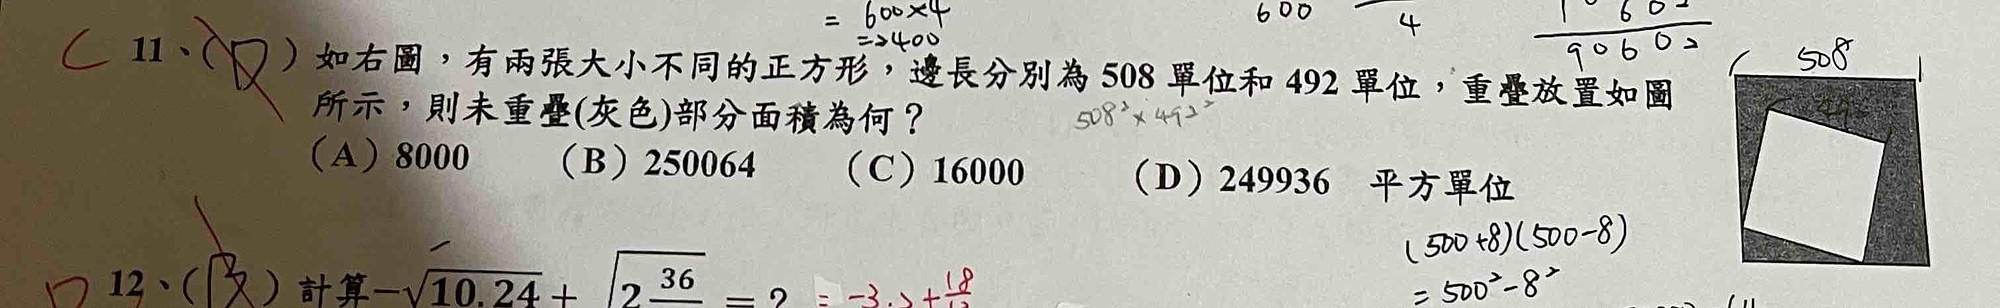 = 600×4
=2400
600
4
90602
C 11、( D ) 如右圖，有兩張大小不同的正方形，邊長分別為 508 單位和 492 單位，重疊放置如圖
所示，則未重疊(灰色)部分面積為何？
508²×492²
(A) 8000 (B) 250064 (C) 16000 (D) 249936 平方單位
508
492
(500+8)(500-8)
= 500²-8²
D 12、( B ) 計算-√10.24 + √2 36 = ? = -3.2+18